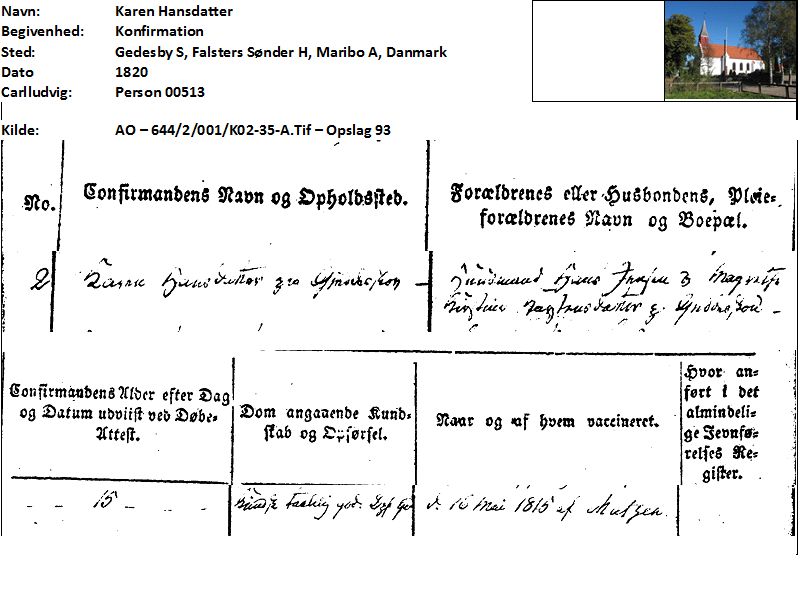 Navn: Karen Hansdatter
Begivenhed: Konfirmation
Sted: Gedesby S, Falsters Sønder H, Maribo A, Danmark
Dato 1820
Carlludvig: Person 00513
Kilde: AO – 644/2/001/K02-35-A.Tif – Opslag 93
No. Confirmandens Navn og Opholdssted. Forældrenes eller Husbondens, Pleie-
forældrenes Navn og Boepæl.
2 Karen Hansdatter Huusmand Hans Jensen Magrethe
Kirstine
Confirmandens Alder efter Dag
og Datum udviist ved Døbe-
Attest.
Dom angaaende Kund-
skab og Opførsel.
Naar og af hvem vaccineret.
Hvor an-
ført i det
almindeli-
ge Jevnfø-
relses Re-
gister.
15 d. 16 Mai 1815 af